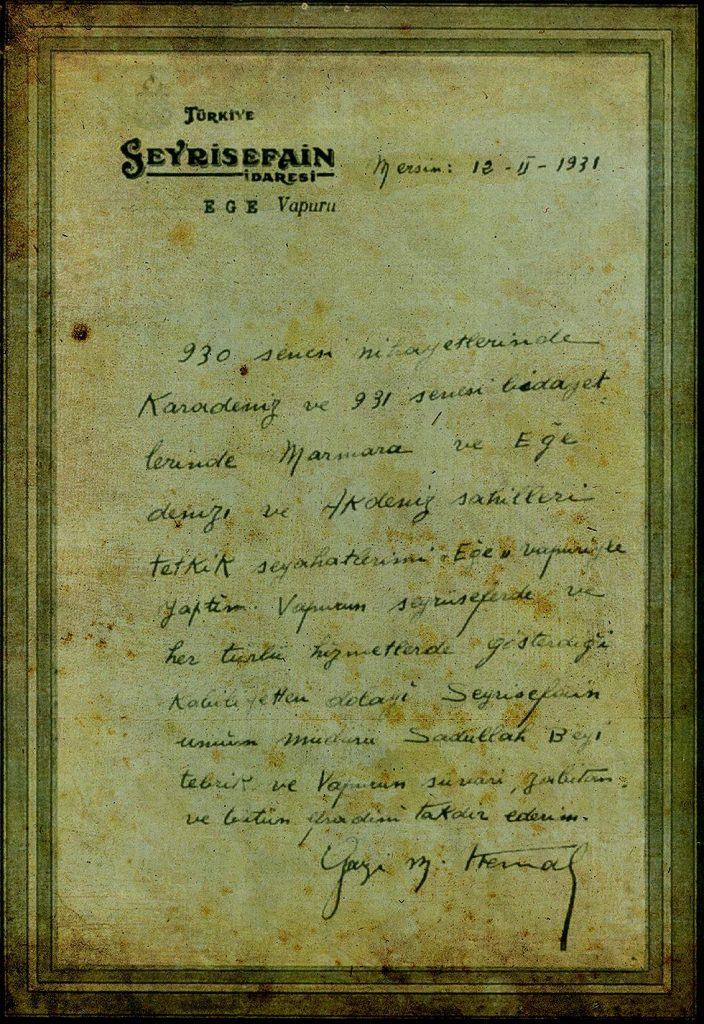 TÜRKİYE
SEYRİSEFAİN
İDARESİ
EGE Vapuru
Mersin: 12-II-1931
930 senesi nihayetlerinde
Karadeniz ve 931 senesi bidayet
lerinde Marmara ve Eğe
denizi ve Akdeniz sahilleri
tetkik seyahatlerimi „Eğe„ vapuriyle
yaptım. Vapurun seyrüseferde ve
her türlü hizmetlerde gösterdiği
kabiliyetten dolayi Seyrisefain
umum müdürü Sadullah Beyi
tebrik ve Vapurun süvari, zabitan
ve bütün efradini takdir ederim.
Gazi M. Kemal